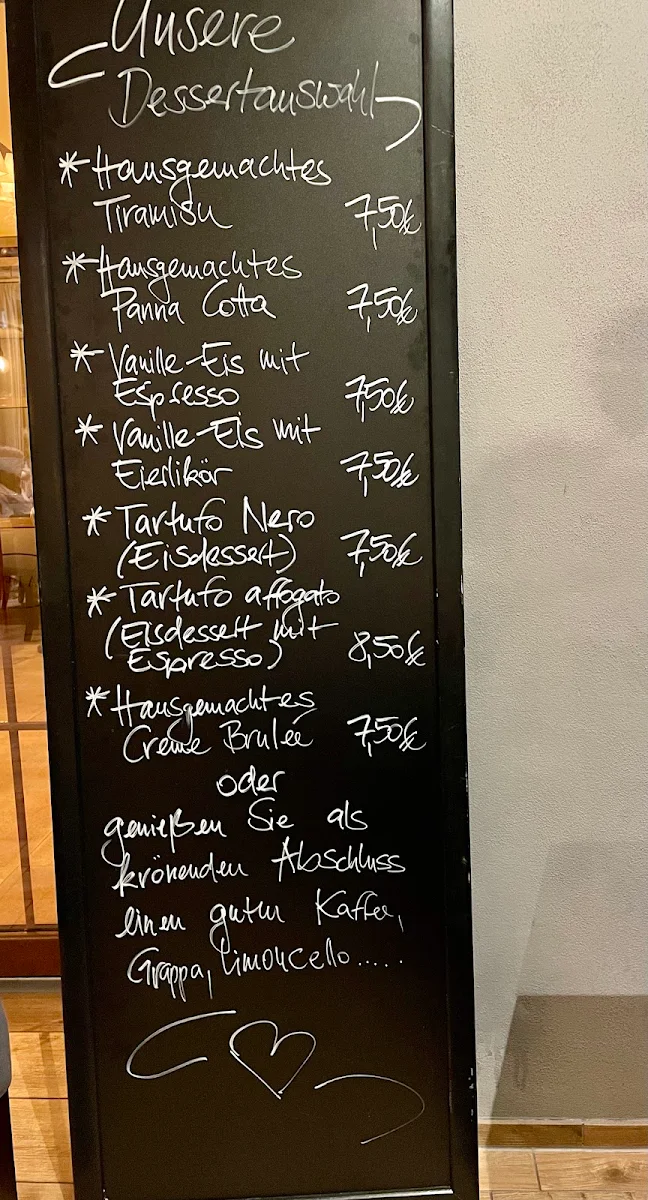 Unsere
Dessertauswahl
* Hausgemachtes
Tiramisu 7,50€
* Hausgemachtes
Panna Cotta 7,50€
* Vanille-Eis mit
Espresso 7,50€
* Vanille-Eis mit
Eierlikör 7,50€
* Tartufo Nero
(Eisdessert) 7,50€
* Tartufo affogato
(Eisdessert mit
Espresso) 8,50€
* Hausgemachtes
Creme Brulée 7,50€
oder
genießen Sie als
krönenden Abschluss
einen guten Kaffee,
Grappa, Limoncello.....